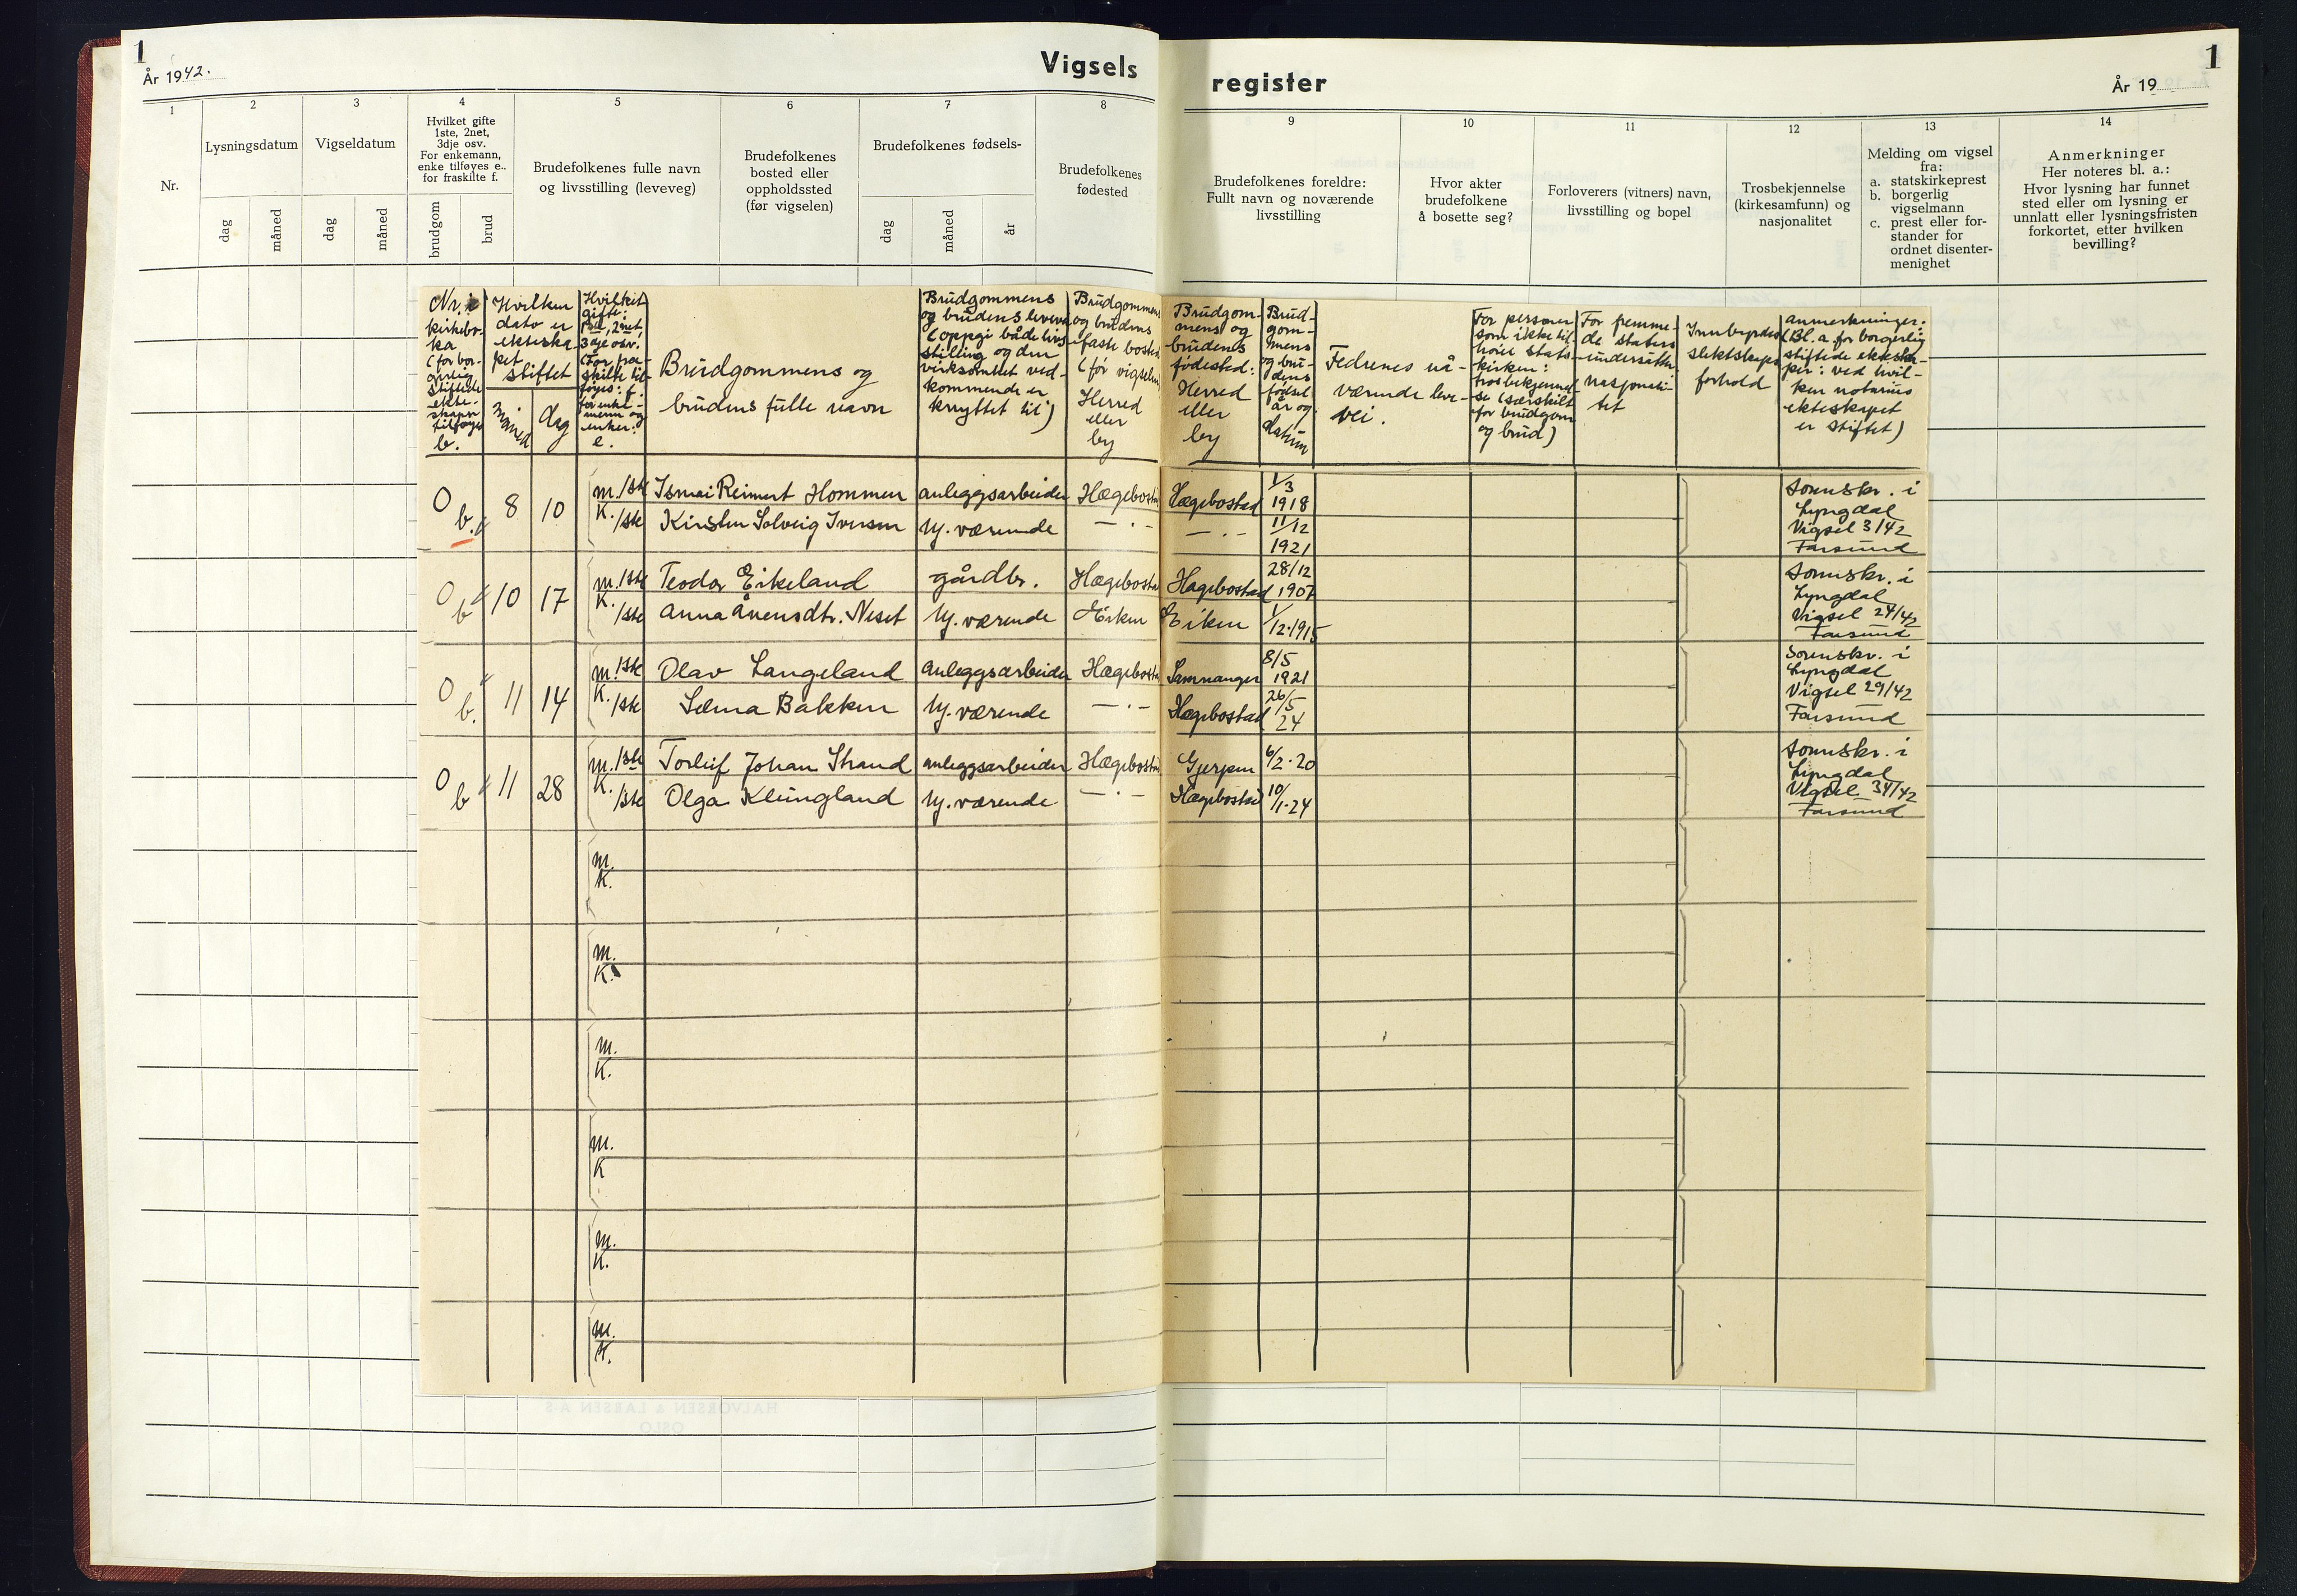 1
År 1942.
Vigsels
register
År 19
1
1
2
3
4
5
6
7
8
9
10
11
12
13
14
Nr.
Lysningsdatum
dag
måned
Vigseldatum
dag
måned
Hvilket gifte
1ste, 2net,
3dje osv.
For enkemann,
enke tilføyes e..
for fraskilte f.
brudgom
brud
Brudefolkenes fulle navn
og livsstilling (leveveg)
Brudefolkenes
bosted eller
oppholdssted
(før vigselen)
Brudefolkenes fødsels-
dag
måned
år
Brudefolkenes
fødested
Brudefolkenes foreldre:
Fullt navn og noværende
livsstilling
Hvor akter
brudefolkene
å bosette seg?
Forloverers (vitners) navn,
livsstilling og bopel
Trosbekjennelse
(kirkesamfunn) og
nasjonalitet
Melding om vigsel
fra:
a. statskirkeprest
b. borgerlig
vigselmann
c. prest eller for-
stander for
ordnet disenter-
menighet
Anmerkninger
Her noteres bl. a.:
Hvor lysning har funnet
sted eller om lysning er
unnlatt eller lysningsfristen
forkortet, etter hvilken
bevilling?
Nr. i
kirkebo-
ka
(for bor-
gerlig
stiftede
ekte-
skaper
tilføyes
b.
Hvilken
dato er
ekteska-
pet
stiftet
måned
dag
Hvilket
gifte:
1ste, 2net,
3dje osv.
(For fra-
skilte til-
føyes: f.
for enke-
menn og
enker:
e.
Brudgommens og
brudens fulle navn
Brudgommens
og brudens levevei
(oppgi både livs-
stilling og den
virksomhet ved-
kommende er
knyttet til)
Brudgommens
og brudens
faste bosted
(før vigselen)
Herred
eller
by
Brudgom-
mens og
brudens
fødested:
Herred
eller
by
Brud-
gom-
mens
og bru-
dens
fødsel
år og
datum
Fedrenes nå-
værende leve-
vei.
For personer
som ikke til-
hører stats-
kirken:
trosbekjennel-
se (særskilt
for brudgom
og brud)
For fremme-
de staters
undersåtter
nasjonali-
tet
Innbyrdes
slektskaps
forhold
Anmerkninger:
(Bl. a. for borgerlig
stiftede ekteska-
per: ved hvil-
ken notarius
ekteskapet
er stiftet)
O b. 8 10 m. 1ste Ismai Reimert Hommen anleggsarbeider Hægebostad Hægebostad 1/3 1918
K. 1ste Kirsten Solveig Iversen hj. værende — · — — · — 11/12 1921
Sorenskr. i
Lyngdal
Vigsel 3/42
Farsund
O b 10 17 m. 1ste Teodor Eikeland gårdbr. Hægebostad Hægebostad 28/12 1907
K. 1ste Anna Ånensdtr. Neset hj. værende Eiken Eiken 1/12·1915
Sorenskr. i
Lyngdal
Vigsel 24/42
Farsund
O b. 11 14 m. 1ste Olav Langeland anleggsarbeider Hægebostad Samnanger 8/5 1921
K. 1ste Selma Bakken hj. værende — · — Hægebostad 26/5 24
Sorenskr. i
Lyngdal
Vigsel 29/42
Farsund
O b 11 28 m. 1ste Torleif Johan Strand anleggsarbeider Hægebostad Gjerpen 6/2·20
K. 1ste Olga Klungland hj. værende — · — Hægebostad 10/1·24
Sorenskr. i
Lyngdal
Vigsel 34/42
Farsund
m.
K.
m.
K.
m.
K.
m.
K
m.
K.
m.
K.